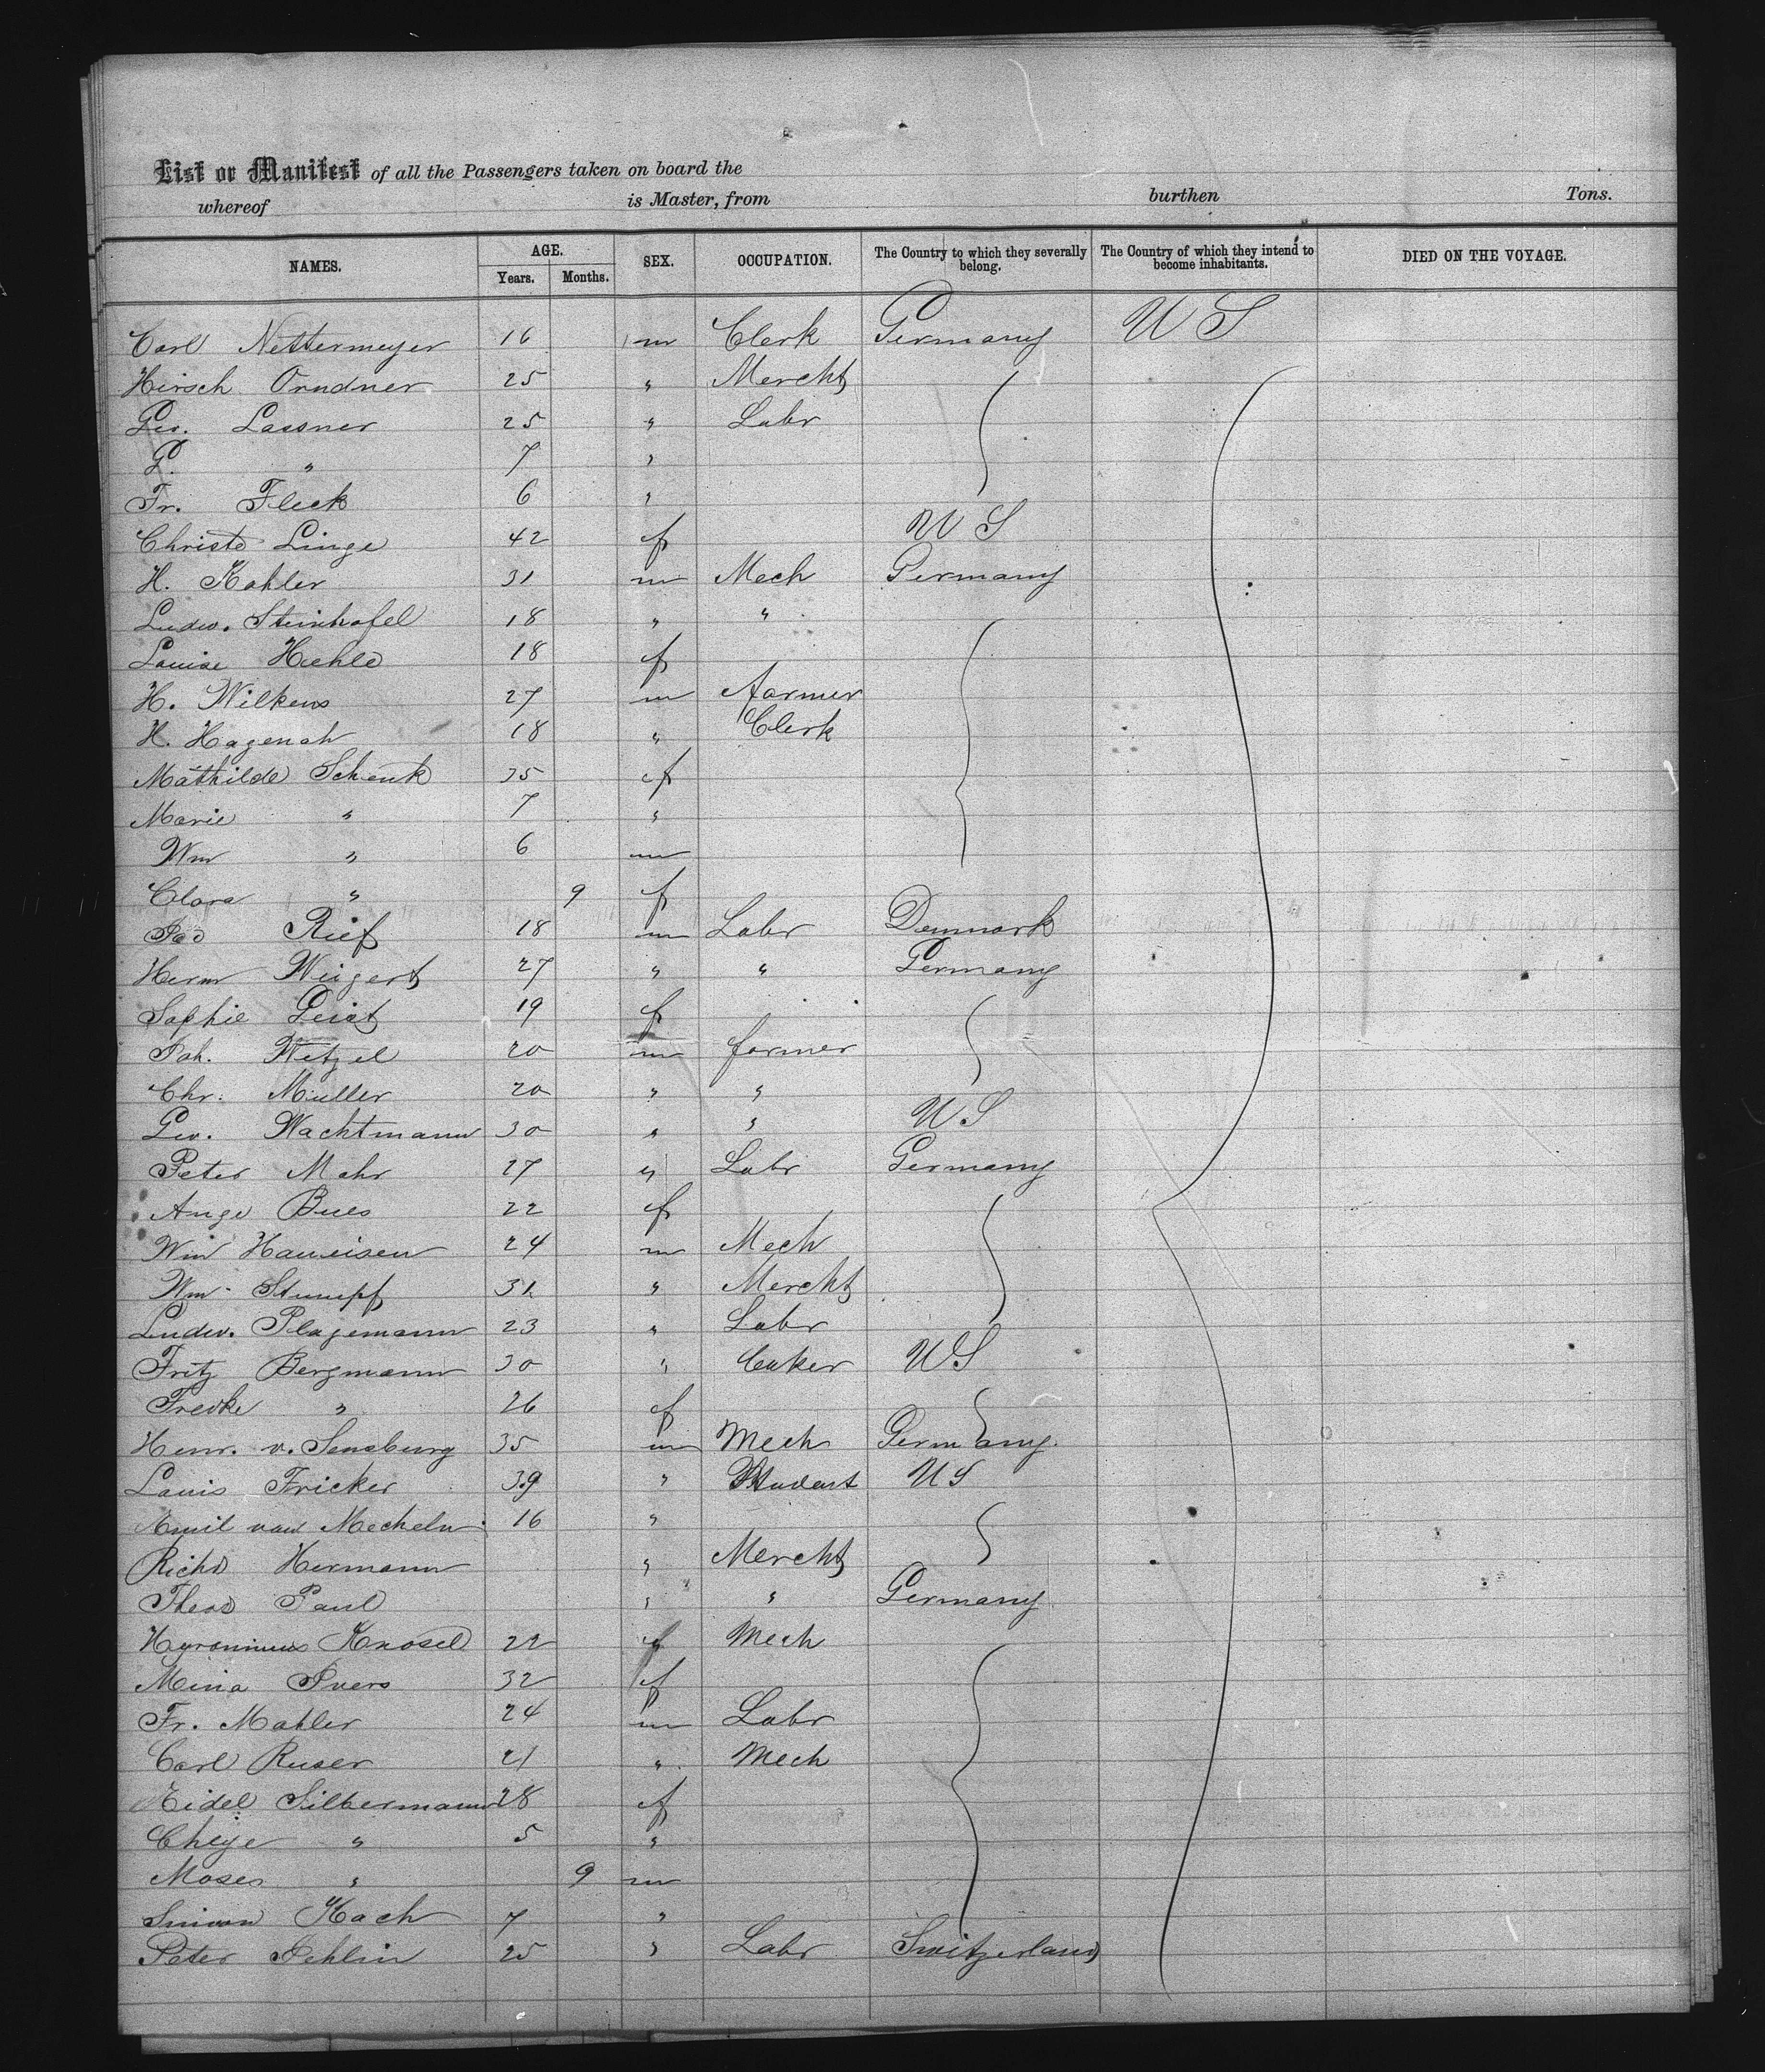 List or Manifest of all the Passengers taken on board the
whereof is Master, from burthen Tons.
NAMES. AGE. Years. Months. SEX. OCCUPATION. The Country to which they severally belong. The Country of which they intend to become inhabitants. DIED ON THE VOYAGE.
Carl Nettermeyer 16 m Clerk Germany U S
Hirsch Orndner 25 " Mercht
Geo. Lassner 25 " Labr
G. " 7 "
Fr. Fleck 6 "
Christe Linge 42 f U S
H. Kohler 31 m Mech Germany
Ludw. Steinhofel 18 " "
Louise Hiehle 18 f
H. Wilkens 27 m farmer
H. Hagenah 18 " Clerk
Mathilde Schenk 35 f
Marie " 7 "
Wm " 6 m
Clara " 9 f
Rief 18 m Labr Denmark
Herm Weigert 27 " " Germany
Sophie Geist 19 f
Joh. Wetzel 20 m farmer
Chr. Muller 20 " "
Geo. Wachtmann 30 " " U S
Peter Mohr 27 " Labr Germany
Ange Bues 22 f
Wm Haueisen 24 m Mech
Wm Stumpf 31 " Mercht
Ludw. Plagemann 23 " Labr
Fritz Bergmann 30 " U S
Fredke " 26 f
Henr. v. Sensburg 35 m Mech Germany
Louis Fricker 39 " Student U S
Emil van Mecheln 16 "
Richd Hermann " Mercht
Theod Paul " " Germany
Hyronimus Knosel 22 Mech
Mina Ivers 32 f
Fr. Mahler 24 m Labr
Carl Ruser 21 " Mech
Eidel Silbermann 28 f
Cheije " 5 "
Moses " 9 m
Simon Kach 7 "
Peter Jehlin 25 " Labr Switzerland